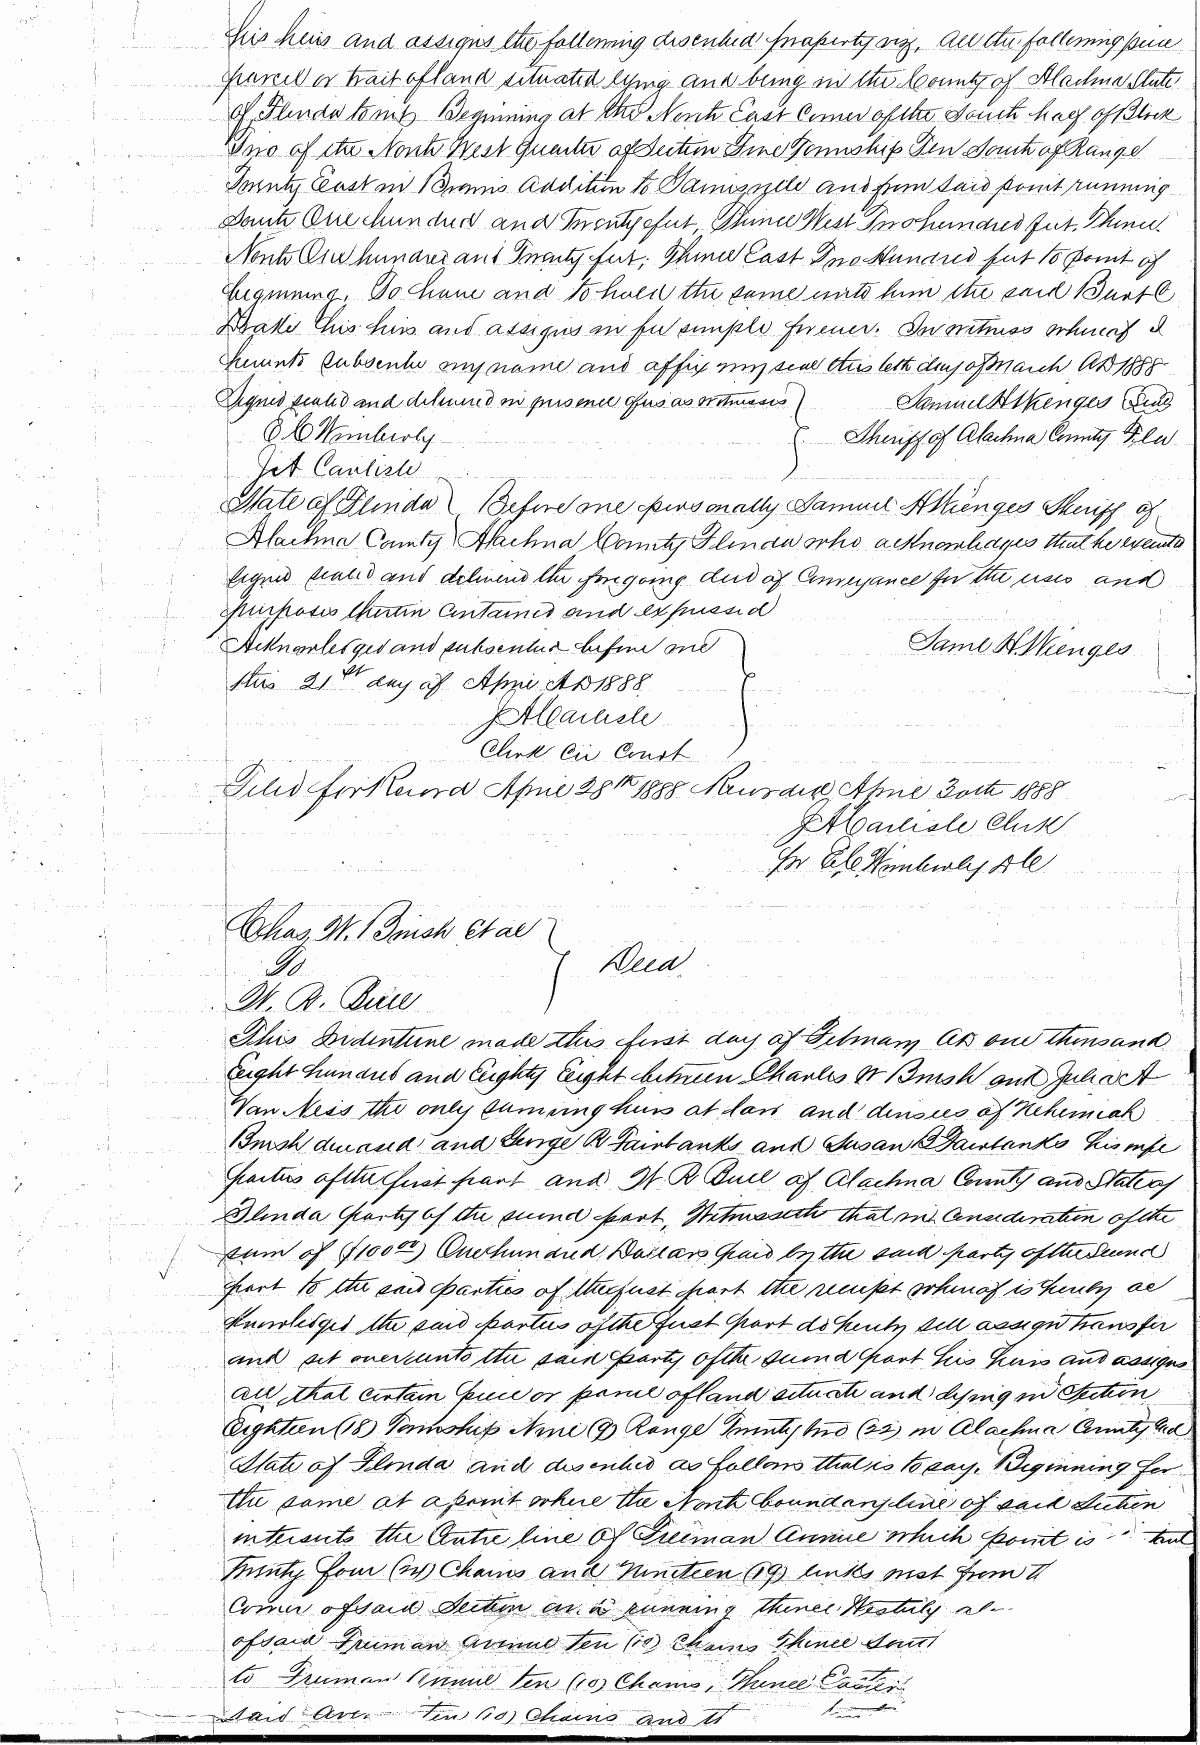 his heirs and assigns the following described property viz. All the following piece
parcel or trait of land situated lying and being in the County of Alachua State
of Florida to wit, Beginning at the North East Corner of the South half of Block
Two of the North West Quarter of Section Five Township Ten South of Range
Twenty East in Browns Addition to Gainesville and from said point running
South One hundred and Twenty feet, Thence West Two hundred feet, Thence
North One hundred and Twenty feet; Thence East Two Hundred feet to point of
beginning. To have and to hold the same unto him the said Burt C
Drake his heirs and assigns in fee simple forever. In witness whereof I
hereunto subscribe my name and affix my seal this 6th day of March AD 1888
Signed sealed and delivered in presence of us as witnesses
Samuel H Wienges Seal
E C Wimberly
Sheriff of Alachua County Fla
Jet Carlisle
State of Florida Before me personally Samuel H Wienges Sheriff of
Alachua County Alachua County Florida who acknowledges that he executed
signed sealed and delivered the foregoing deed of Conveyance for the uses and
purposes therein contained and expressed
Acknowledged and subscribed before me
Saml H Wienges
this 21st day of April AD 1888
J A Carlisle
Clerk Cir Court
Filed for Record April 28th 1888 Recorded April 30th 1888
J A Carlisle Clerk
pr E C Wimberly D C
Chas. W. Brush et al
To
Deed.
W. R. Buell
This Indenture made this first day of February AD one thousand
Eight hundred and Eighty Eight between Charles W Brush and Julia A
Van Ness the only surviving heirs at law and devisees of Nehemiah
Brush deceased and George R Fairbanks and Susan B Fairbanks his wife
parties of the first part and W R Buell of Alachua County and State of
Florida party of the second part, Witnesseth that in Consideration of the
sum of ($100 00) One hundred Dollars paid by the said party of the Second
part to the said parties of the first part the receipt whereof is hereby ac
knowledged the said parties of the first part do hereby sell assign transfer
and set over unto the said party of the second part his heirs and assigns
all that certain piece or parcel of land situate and lying in Section
Eighteen (18) Township Nine (9) Range Twenty two (22) in Alachua County and
State of Florida and described as follows that is to say. Beginning for
the same at a point where the North boundary line of said Section
intersects the Centre line of Freeman Avenue which point is
Twenty four (24) Chains and Nineteen (19) links west from
Corner of said Section and running thence Westerly
of said Freeman Avenue Ten (10) Chains Thence South
to Freeman Avenue Ten (10) Chains, Thence Easterly
said Ave. Ten (10) Chains and